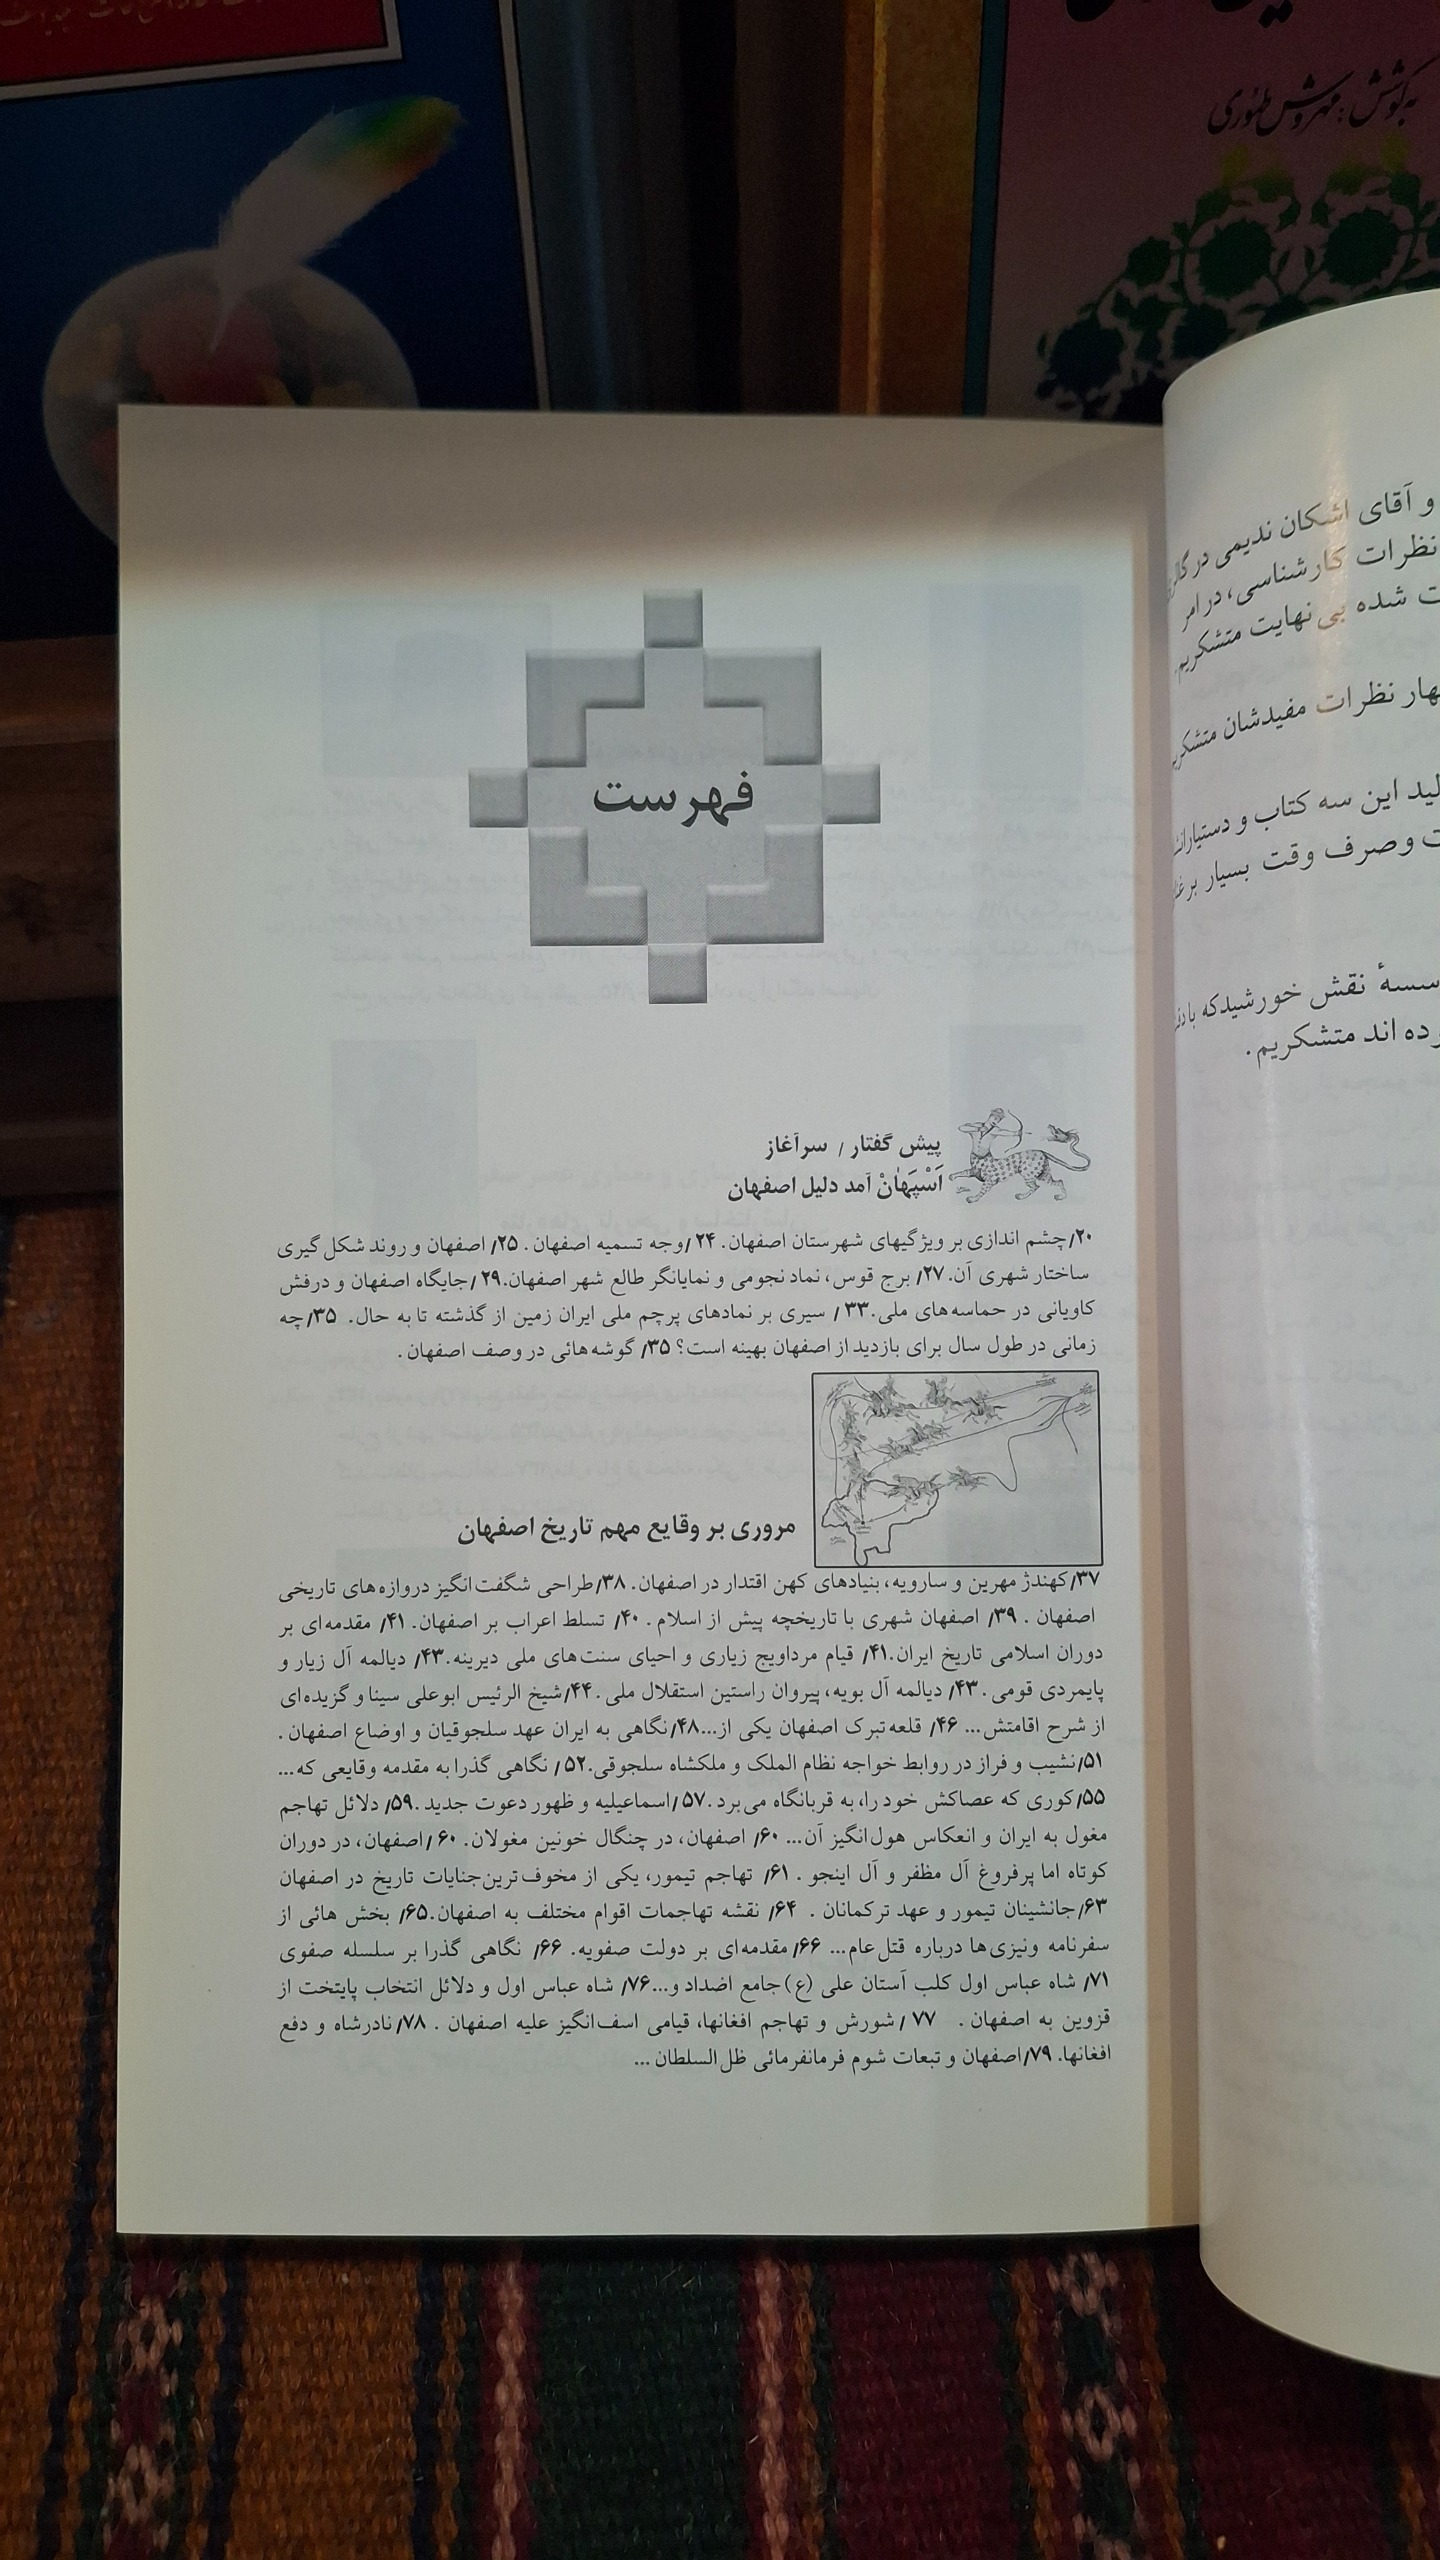 به کوشش: مهروش طهوری
فهرست
پیش گفتار / سرآغاز
اَسْپَهٰانْ آمد دلیل اصفهان
۲۰/چشم اندازی بر ویژگیهای شهرستان اصفهان. ۲۴ /وجه تسمیه اصفهان. ۲۵/ اصفهان و روند شکل گیری
ساختار شهری آن. ۲۷/ برج قوس، نماد نجومی و نمایانگر طالع شهر اصفهان.۲۹ /جایگاه اصفهان و درفش
کاویانی در حماسه‌های ملی.۳۳ / سیری بر نمادهای پرچم ملی ایران زمین از گذشته تا به حال. ۳۵/چه
زمانی در طول سال برای بازدید از اصفهان بهینه است؟ ۳۵/ گوشه‌هائی در وصف اصفهان .
مروری بر وقایع مهم تاریخ اصفهان
۳۷/کهندژ مهرین و سارویه، بنیادهای کهن اقتدار در اصفهان. ۳۸/طراحی شگفت‌انگیز دروازه‌های تاریخی
اصفهان . ۳۹/ اصفهان شهری با تاریخچه پیش از اسلام . ۴۰/ تسلط اعراب بر اصفهان. ۴۱/ مقدمه‌ای بر
دوران اسلامی تاریخ ایران.۴۱/ قیام مرداویج زیاری و احیای سنت‌های ملی دیرینه.۴۳/ دیالمه آل زیار و
پایمردی قومی . ۴۳/ دیالمه آل بویه، پیروان راستین استقلال ملی . ۴۴/شیخ الرئیس ابوعلی سینا و گزیده‌ای
از شرح اقامتش... ۴۶/ قلعه تبرک اصفهان یکی از...۴۸/نگاهی به ایران عهد سلجوقیان و اوضاع اصفهان .
۵۱/نشیب و فراز در روابط خواجه نظام الملک و ملکشاه سلجوقی.۵۲ / نگاهی گذرا به مقدمه وقایعی که...
۵۵/کوری که عصاکش خود را، به قربانگاه می‌برد .۵۷ /اسماعیلیه و ظهور دعوت جدید .۵۹/ دلائل تهاجم
مغول به ایران و انعکاس هول‌انگیز آن... ۶۰/ اصفهان، در چنگال خونین مغولان. ۶۰ /اصفهان، در دوران
کوتاه اما پرفروغ آل مظفر و آل اینجو . ۶۱/ تهاجم تیمور، یکی از مخوف‌ترین‌جنایات تاریخ در اصفهان
۶۳/جانشینان تیمور و عهد ترکمانان . ۶۴/ نقشه تهاجمات اقوام مختلف به اصفهان.۶۵/ بخش هائی از
سفرنامه ونیزی‌ها درباره قتل‌عام... ۶۶/مقدمه‌ای بر دولت صفویه. ۶۶/ نگاهی گذرا بر سلسله صفوی
۷۱/ شاه عباس اول کلب آستان علی (ع)جامع اضداد و...۷۶/ شاه عباس اول و دلائل انتخاب پایتخت از
قزوین به اصفهان . ۷۷ / شورش و تهاجم افغانها، قیامی اسف‌انگیز علیه اصفهان . ۷۸/نادرشاه و دفع
افغانها. ۷۹/اصفهان و تبعات شوم فرمانفرمائی ظل‌السلطان ...
و آقای اشکان ندیمی در
نظرات کارشناسی، در امر
شده بی نهایت متشکریم.
نظرات مفیدشان
این سه کتاب و
وصرف وقت بسیار
نقش خورشید که با
اند متشکریم .